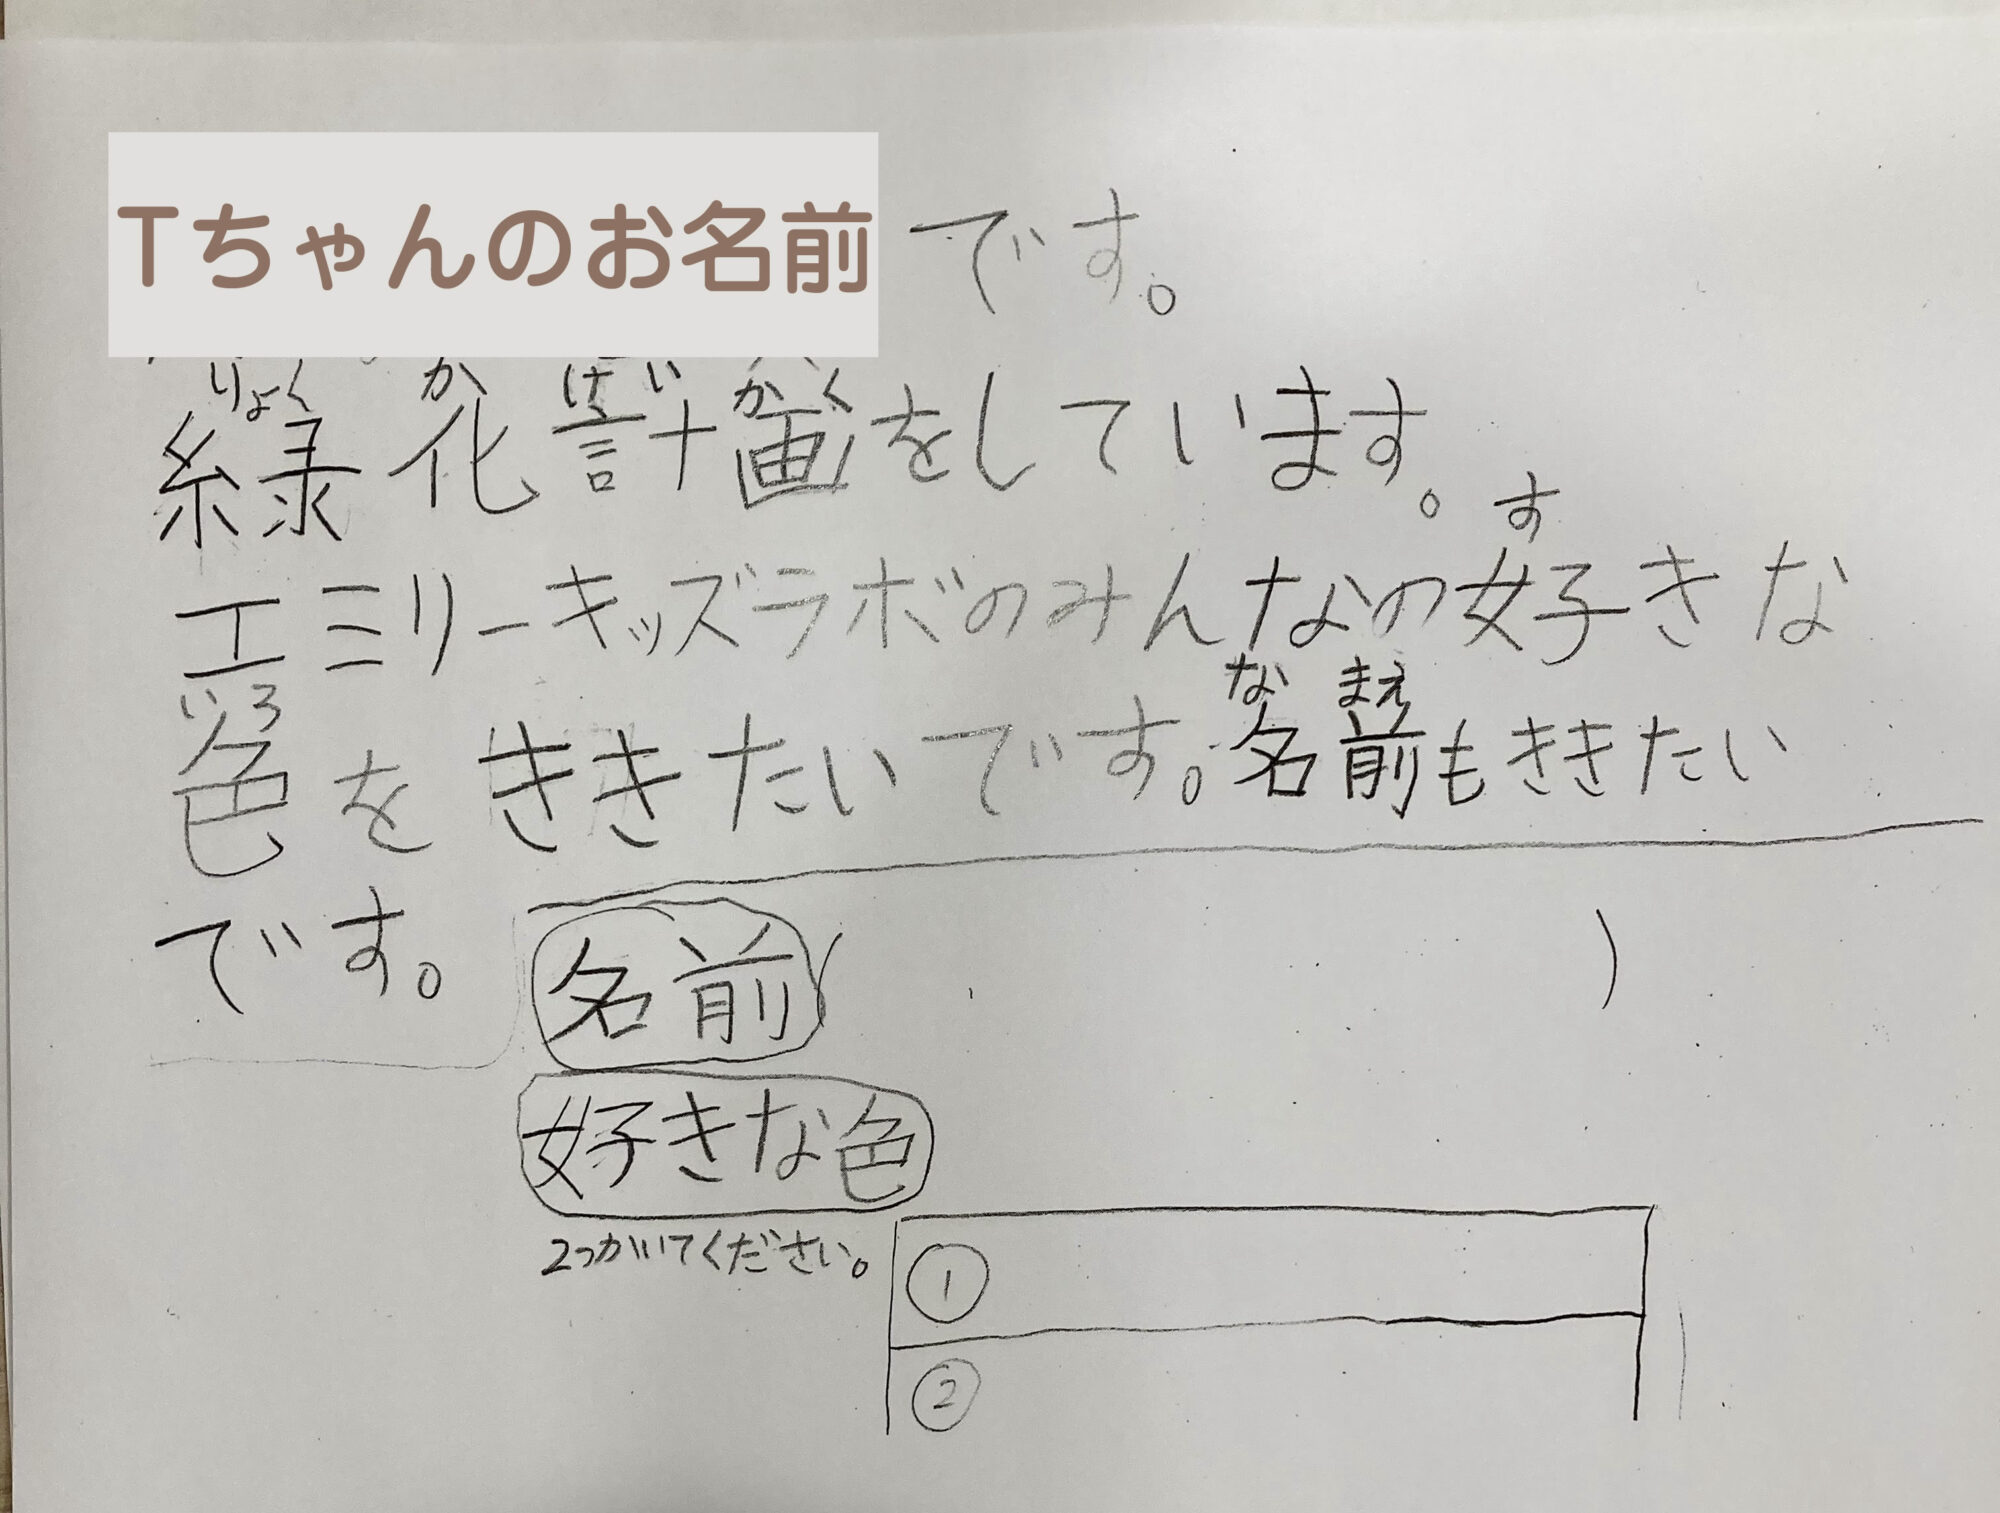 Tちゃんのお名前です。
りょく か けい かく
緑化計画をしています。
す
エミリーキッズラボのみんなの好きな
いろ
なまえ
色をききたいです。名前もききたい
です。
名前( )
好きな色
2つかいてください。
①
②